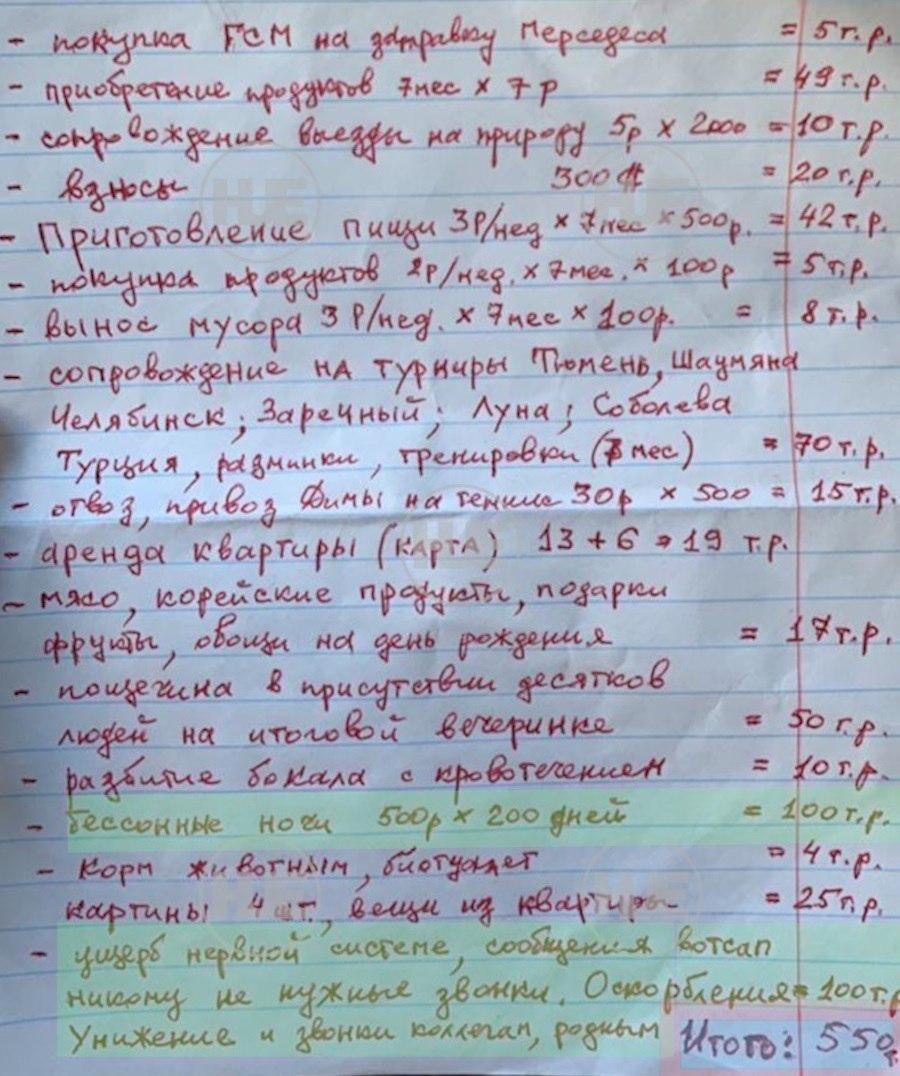 - покупка ГСМ на заправку Мерседеса = 5 т.р.
- приобретение продуктов 7 мес х 7 р = 49 т.р.
- сопровождение выезды на природу 5р х 2000 = 10 т.р.
- взносы 300 = 20 т.р.
- Приготовление пищи 3Р/нед х 7 мес х 500р. = 42 т.р.
- покупка продуктов 2Р/нед. х 7 мес. х 100р = 5 т.р.
- вынос мусора 3 Р/нед. х 7 мес х 100р. = 8 т.р.
- сопровождение на турниры Тюмень, Шаумяна
Челябинск; Заречный; Луна; Соболева
Турция, разминки, тренировки (7 мес) = 70 т.р.
- отвоз, привоз Димы на теннис 30р х 500 = 15 т.р.
- аренда квартиры (карта) 13 + 6 = 19 т.р.
- мясо, корейские продукты, подарки
фрукты, овощи на день рождения = 17 т.р.
- пощечина в присутствии десятков
людей на итоговой вечеринке = 50 т.р.
- разбитие бокала с кровотечением = 10 т.р.
- бессонные ночи 500р х 200 дней = 100 т.р.
- Корм животным, биотуалет = 4 т.р.
картины 4 шт., вещи из квартиры = 25 т.р.
- ущерб нервной системе, сообщения вотсап
никому не нужные звонки. Оскорбления = 100 т.р
Унижение и звонки коллегам, родным Итого: 550 т.